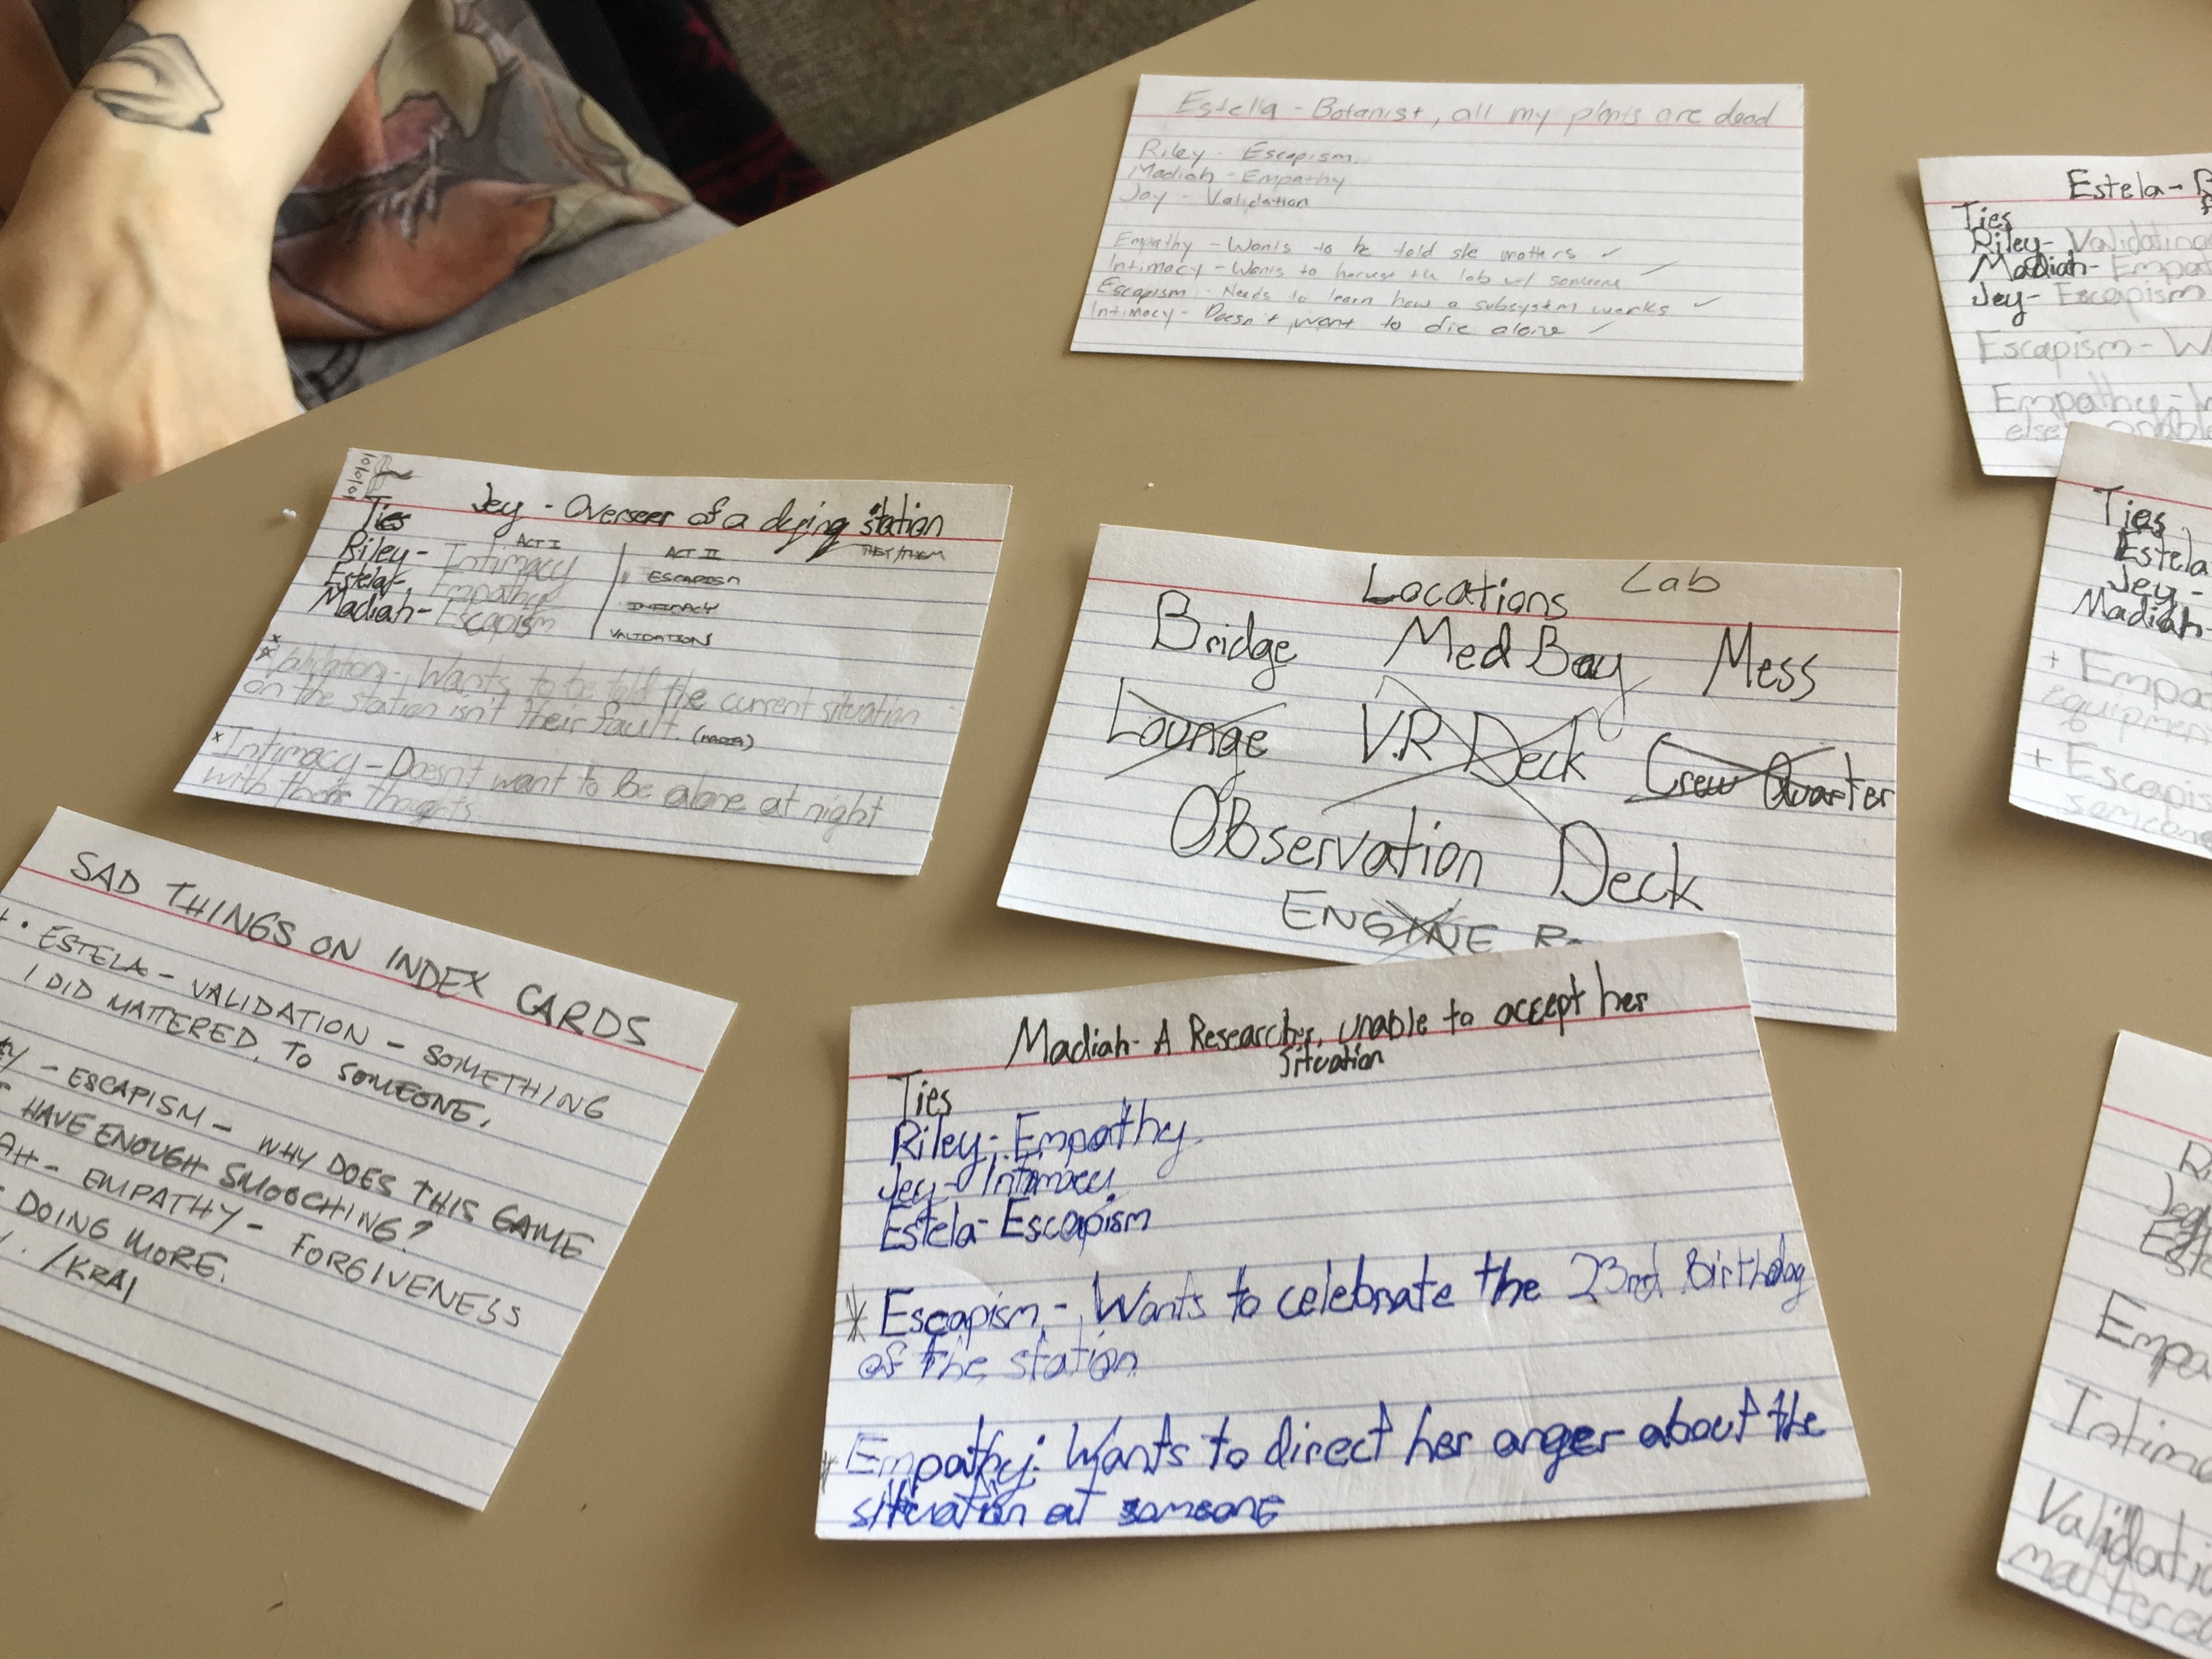 Estella - Botanist, all my plants are dead
Riley - Escapism
Madiah - Empathy
Jay - Validation
Empathy - Wants to be told she matters ✓
Intimacy - Wants to harvest the lab w/ someone
Escapism - Needs to learn how a subsystem works ✓
Intimacy - Doesn't want to die alone ✓
Estela-
Ties
Riley- Validating
Madiah- Empat
Jey- Escapism
Escapism - W
Empathy-
else
Ties
Estela
Jey -
Madiah-
+ Empa
equipmen
+ Escapis
someone
Jey - Overseer of a dying station
THEY/THEM
Ties
ACT I
ACT II
Riley- Intimacy
ESCAPISM
Estela- Empathy
INTIMACY
Madiah- Escapism
VALIDATION
Validation - Wants to be told the current situation
on the station isn't their fault.
Intimacy - Doesn't want to be alone at night
with their thoughts
Locations Lab
Bridge Med Bay Mess
Lounge V.R Deck Crew Quarter
Observation Deck
ENGINE
SAD THINGS ON INDEX CARDS
• ESTELA - VALIDATION - SOMETHING
I DID MATTERED, TO SOMEONE,
- ESCAPISM - WHY DOES THIS GAME
HAVE ENOUGH SMOOCHING?
AH - EMPATHY - FORGIVENESS
DOING MORE.
/KRAI
Madiah- A Researcher, unable to accept her
situation
Ties
Riley- Empathy
Jey- Intimacy
Estela- Escapism
* Escapism - Wants to celebrate the 23rd Birthday
of the station
* Empathy: Wants to direct her anger about the
situation at someone
Empa
Intima
Validatio
mattered